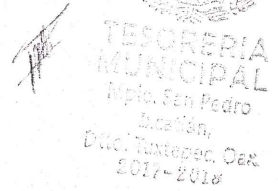 TESORERIA
MUNICIPAL
Mpio. San Pedro
Ixcatlán,
Dtto. Tuxtepec, Oax.
2017-2018